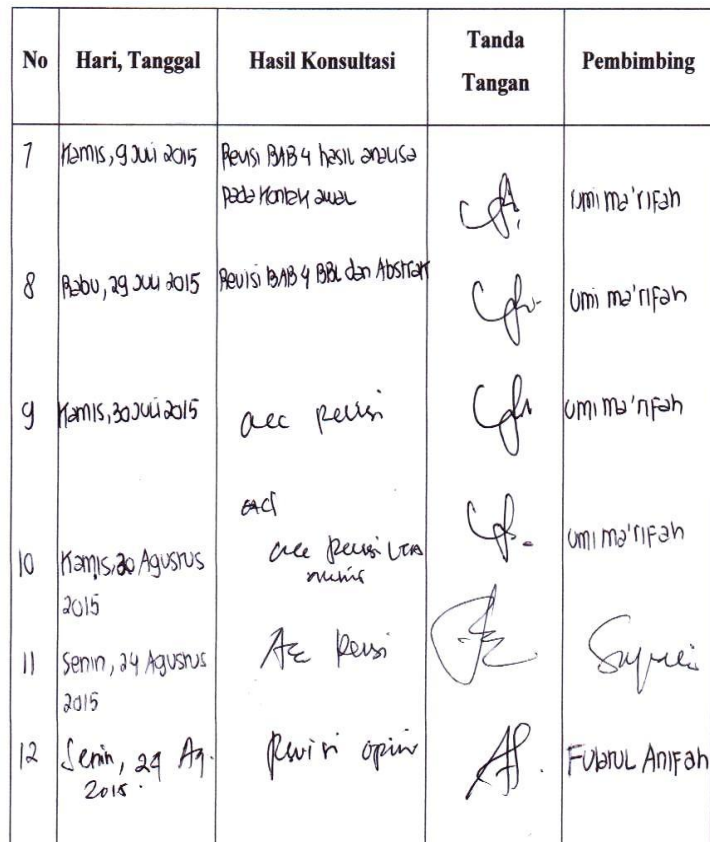 No Hari, Tanggal Hasil Konsultasi Tanda Tangan Pembimbing
7 Kamis, 9 Juli 2015 Revisi BAB 4 hasil analisa pada kontak awal Umi ma'rifah
8 Rabu, 29 Juli 2015 Revisi BAB 4 BBL dan Abstrak Umi ma'rifah
9 Kamis, 30 Juli 2015 acc revisi Umi ma'rifah
10 Kamis, 20 Agustus 2015 acc revisi Umi ma'rifah
11 Senin, 24 Agustus 2015 Acc Revisi
12 Senin, 24 Ag. 2015. Revisi opini Fulatul Anifah